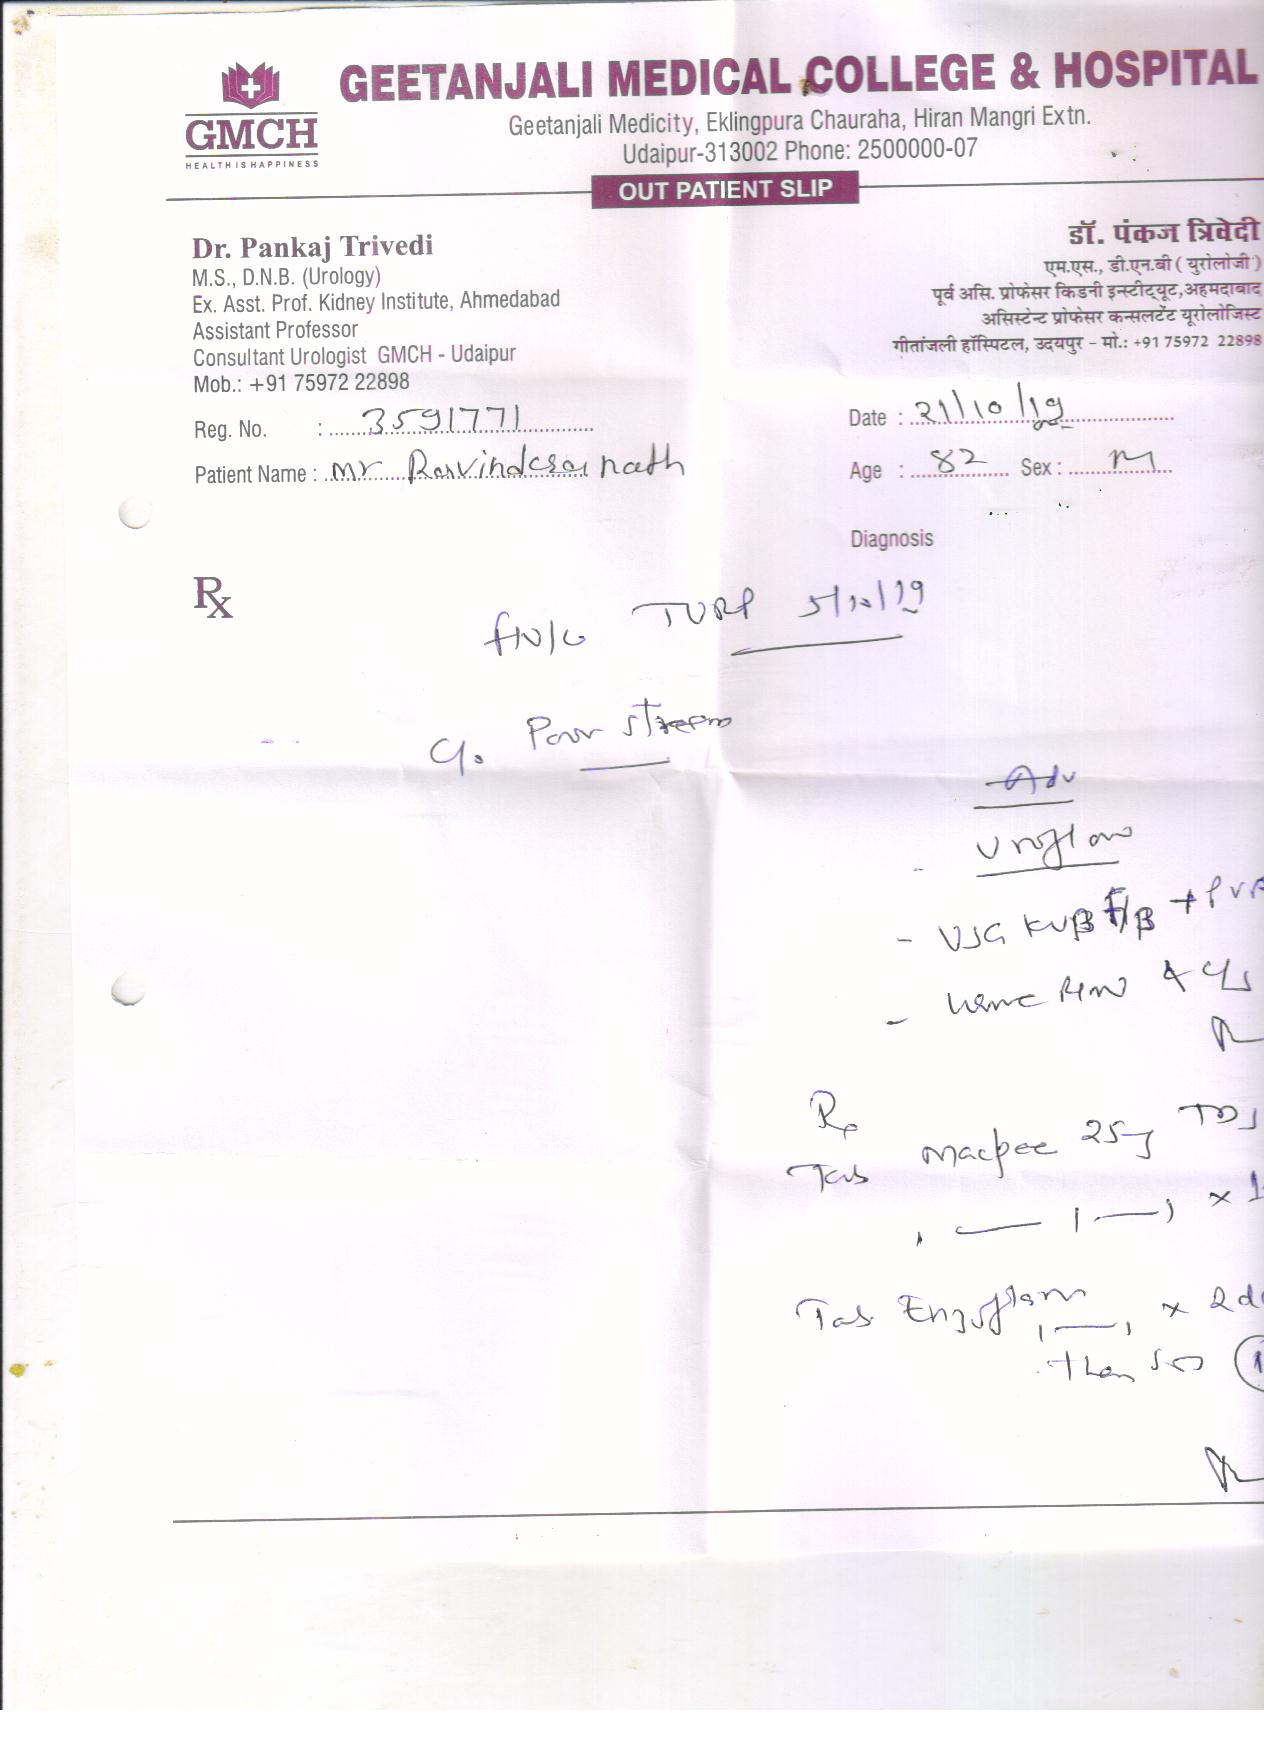 GEETANJALI MEDICAL COLLEGE & HOSPITAL
GMCH
HEALTH IS HAPPINESS
Geetanjali Medicity, Eklingpura Chauraha, Hiran Mangri Extn.
Udaipur-313002 Phone: 2500000-07
OUT PATIENT SLIP
Dr. Pankaj Trivedi
M.S., D.N.B. (Urology)
Ex. Asst. Prof. Kidney Institute, Ahmedabad
Assistant Professor
Consultant Urologist GMCH - Udaipur
Mob.: +91 75972 22898
डॉ. पंकज त्रिवेदी
एम.एस., डी.एन.बी ( युरोलोजी )
पूर्व असि. प्रोफेसर किडनी इन्स्टीट्यूट,अहमदाबाद
असिस्टेन्ट प्रोफेसर कन्सलटेंट यूरोलोजिस्ट
गीतांजली हॉस्पिटल, उदयपुर - मो.: +91 75972 22898
Reg. No. : 3591771
Date : 21/10/19
Patient Name : Mr Ravindera nath
Age : 82 Sex : M
Diagnosis
Rx
TURP 5/10/19
C/o Poor stream
Adv
Uroflow
- USG KUB + PVR
- Urine R/M & C/s
Rx
Tab 25mg TDS
Tab × 2d
then SOS